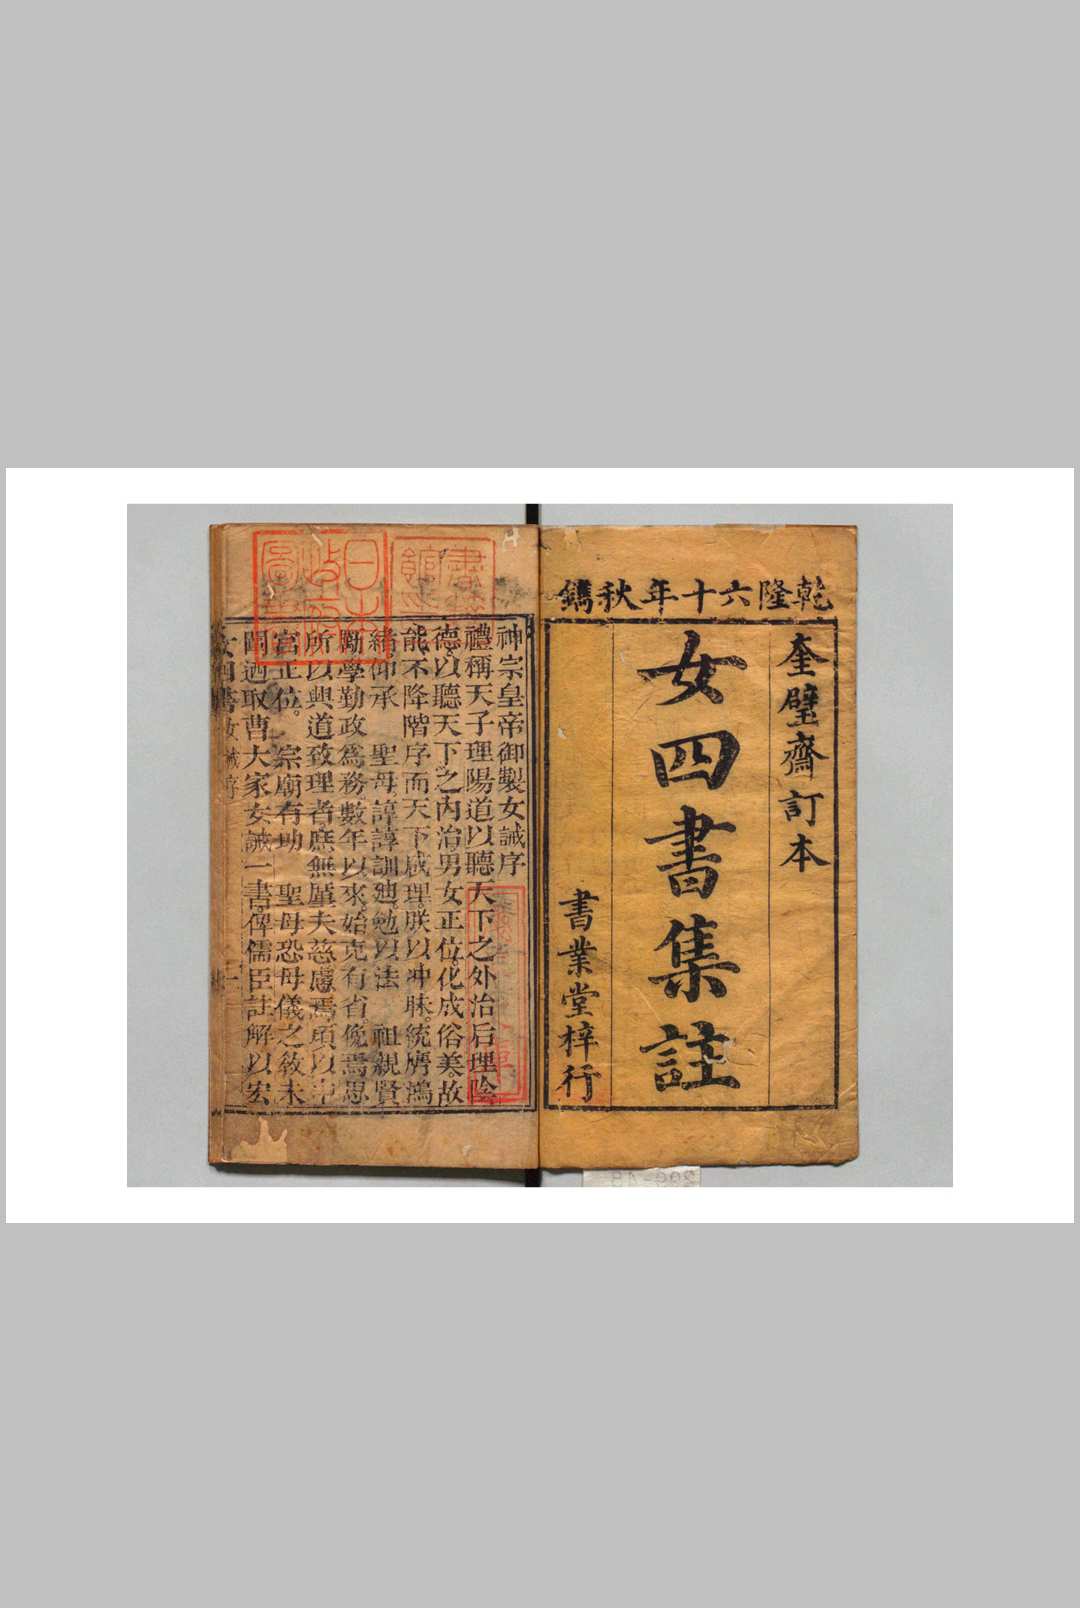 乾隆六十年秋鐫
奎璧齋訂本
女四書集註
書業堂梓行
神宗皇帝御製女誡序
禮稱天子理陽道以聽天下之外治后理陰
德。以聽天下之內治。男女正位。化成俗美。故
能不降階序而天下咸理。朕以冲昧。統膺鴻
緒仰承 聖母。諄諄訓廸。勉以法 祖親賢
勵學勤政爲務。數年以來。始克有省。儆焉思
所以興道致理者。庶無墜夫慈慮焉。頃以中
宮正位。 宗廟有功 聖母恐母儀之敎未
閑。迺取曹大家女誡一書。俾儒臣註解。以宏
女四書女誡序 一